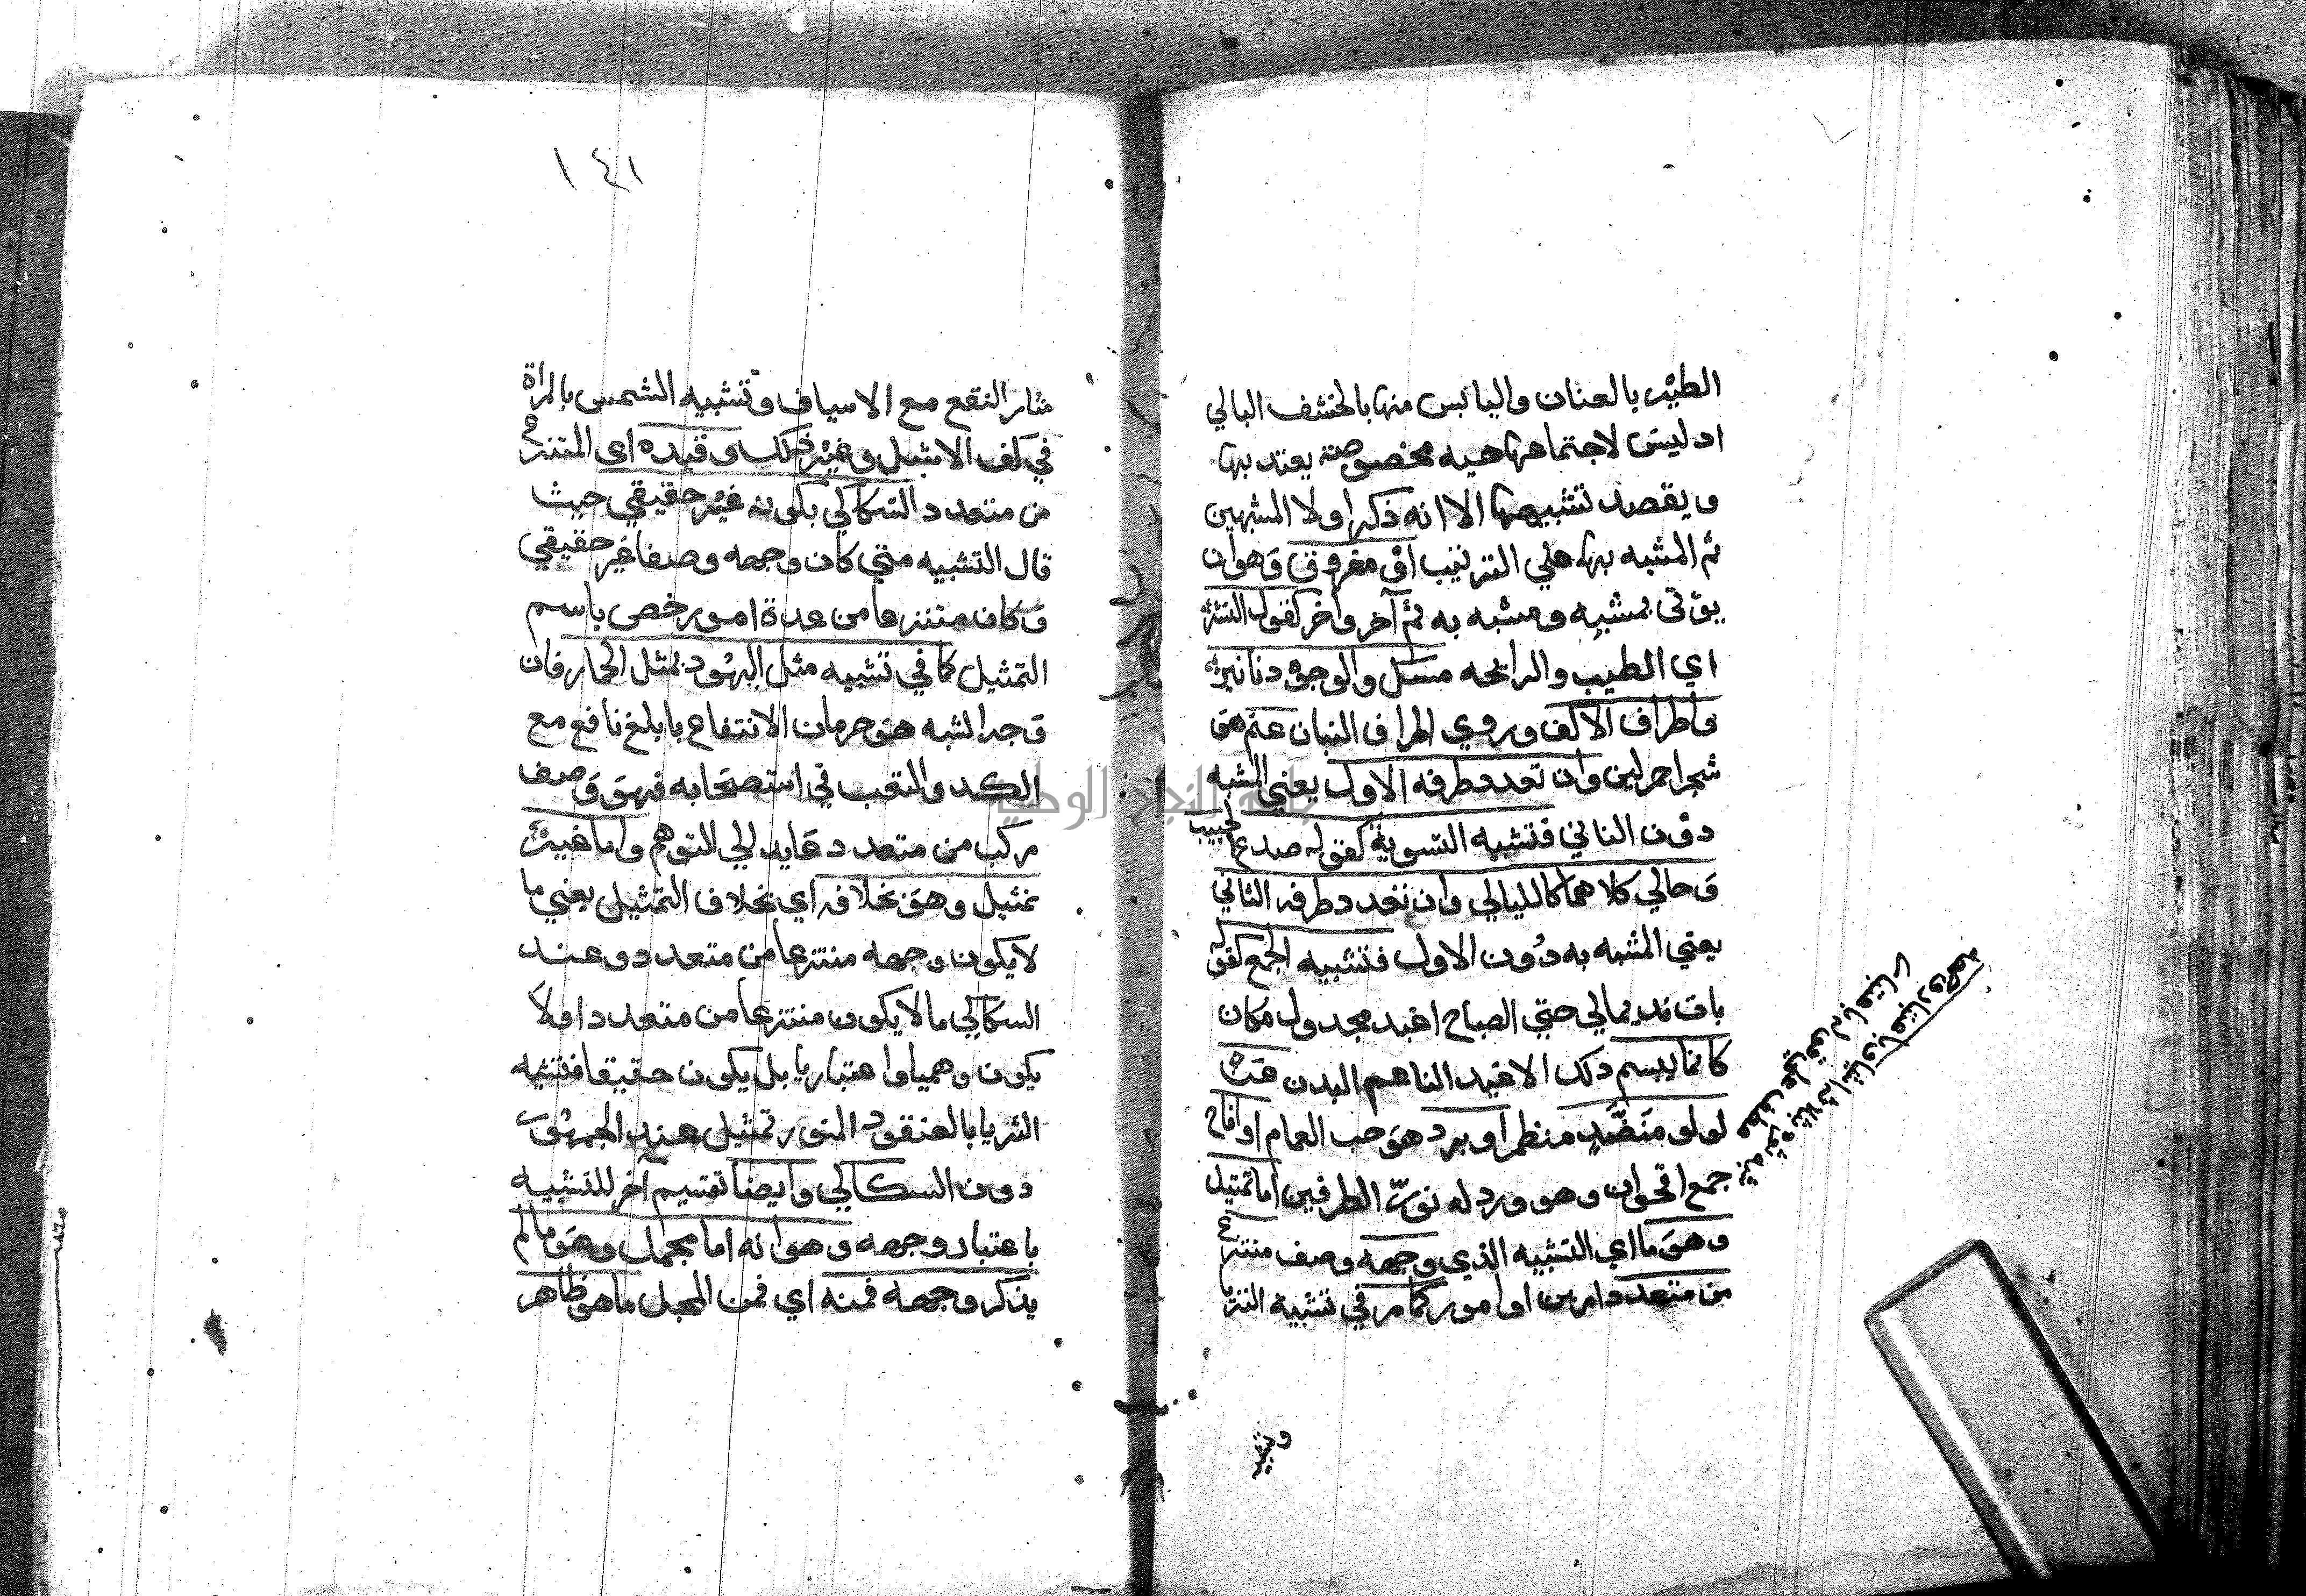 الطير بالعنان واليابس منها بالخشف البالي
اد ليس لاجتماعها هيه مخصوصة يعتد بها
ويقصد تشبيهها الا انه ذكر اولا المشبهين
ثم المشبه بها علي الترتيب او مفروق وهو ان
يؤتى بمشبه ومشبه به ثم آخر وآخر كقوله النشر
اي الطيب والرايحه مسك والوجوه دنانير
واطراف الاكف وروي اطراف البنان عنم هو
شجر احمر لين وان تعدد طرفه الاول يعني المشبه
دون الثاني فتشبيه التسوية كقوله صدع الحبيب
وحالي كلاهما كالليالي وان تعدد طرفه الثاني
يعني المشبه به دون الاول فتشبيه الجمع كقوله
بات نديما لي حتي الصباح اغيد مجدول مكان
كانما يبسم ذلك الاغيد الناعم البدن عن
لولو منضد منظم او برد هو حب الغمام او اقاح
جمع اقحوان وهو ورد له نور الطرفين اما تمثيل
وهو ما اي التشبيه الذي وجهه وصف منتزع
من متعدد امرين او امور كما مر في تشبيه الثريا
وتشبيه
١٤١
مثار النقع مع الاسياف وتشبيه الشمس بالمراة
في كف الاشل وغير ذلك وقيده اي المنتزع
من متعدد السكاكي بكونه غير حقيقي حيث
قال التشبيه متي كان وجهه وصفا غير حقيقي
وكان منتزعا من عدة امور خص باسم
التمثيل كما في تشبيه مثل اليهود بمثل الحمار فان
وجه الشبه هو حرمان الانتفاع بابلغ نافع مع
الكد والتعب في استصحابه فهو وصف
مركب من متعدد عايد الي التوهم واما غير
تمثيل وهو بخلافه اي بخلاف التمثيل يعني ما
لا يكون وجهه منتزعا من متعدد وعند
السكاكي ما لا يكون منتزعا من متعدد اولا
يكون وهميا واعتباريا بل يكون حقيقا فتشبيه
الثريا بالعنقود المنور تمثيل عند الجمهور
دون السكاكي وايضا تقسيم آخر للتشبيه
باعتبار وجهه وهو انه اما مجمل وهو ما لم
يذكر وجهه فمنه اي فمن المجمل ما هو ظاهر